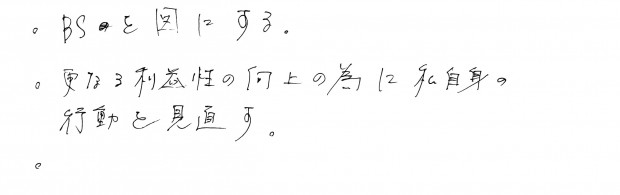 。BSを図にする。
。更なる利益性の向上の為に私自身の
行動を見直す。
。